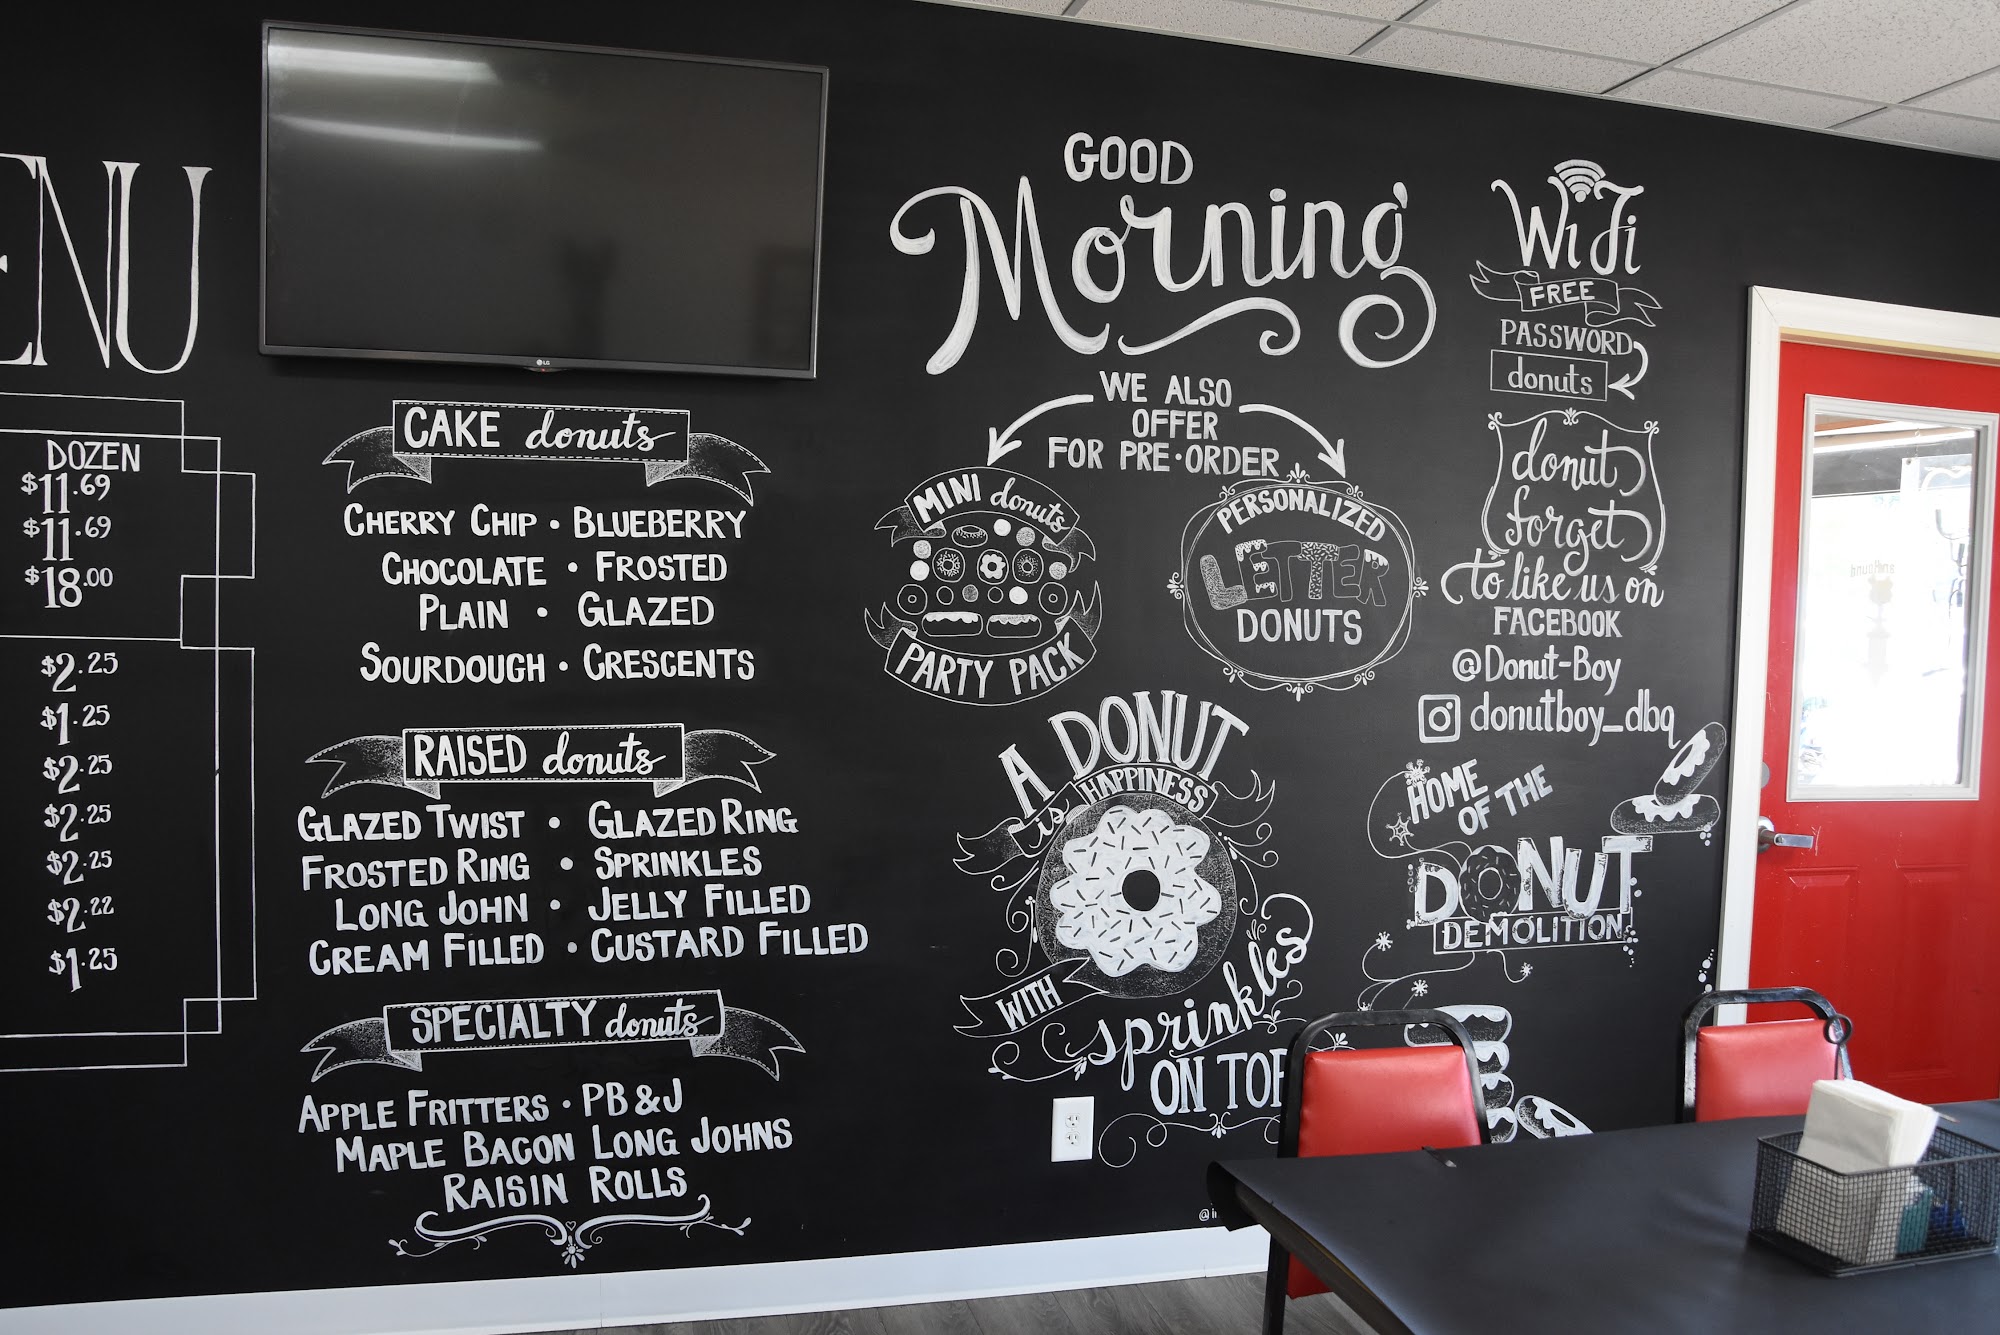 ENU
DOZEN
$11.69
$11.69
$18.00
$2.25
$1.25
$2.25
$2.25
$2.25
$2.22
$1.25
LG
CAKE donuts
CHERRY CHIP • BLUEBERRY
CHOCOLATE • FROSTED
PLAIN • GLAZED
SOURDOUGH • CRESCENTS
RAISED donuts
GLAZED TWIST • GLAZED RING
FROSTED RING • SPRINKLES
LONG JOHN • JELLY FILLED
CREAM FILLED • CUSTARD FILLED
SPECIALTY donuts
APPLE FRITTERS • PB & J
MAPLE BACON LONG JOHNS
RAISIN ROLLS
GOOD
Morning
WE ALSO
OFFER
FOR PRE•ORDER
MINI donuts
PARTY PACK
PERSONALIZED
LETTER
DONUTS
A DONUT
is HAPPINESS
WITH
sprinkles
ON TOP
WiFi
FREE
PASSWORD
donuts
donut
forget
to like us on
FACEBOOK
@Donut-Boy
donutboy_dbq
HOME
OF THE
DONUT
DEMOLITION